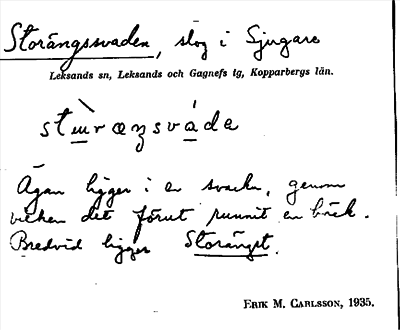 Storängssvaden, slog i Sjugare
Leksands sn, Leksands och Gagnefs tg, Kopparbergs län.
stɯ̀ræŋsváde
Ägan ligger i en svacka, genom
vilken det förut runnit en bäck.
Bredvid ligger Storänget.
ERIK M. CARLSSON, 1935.